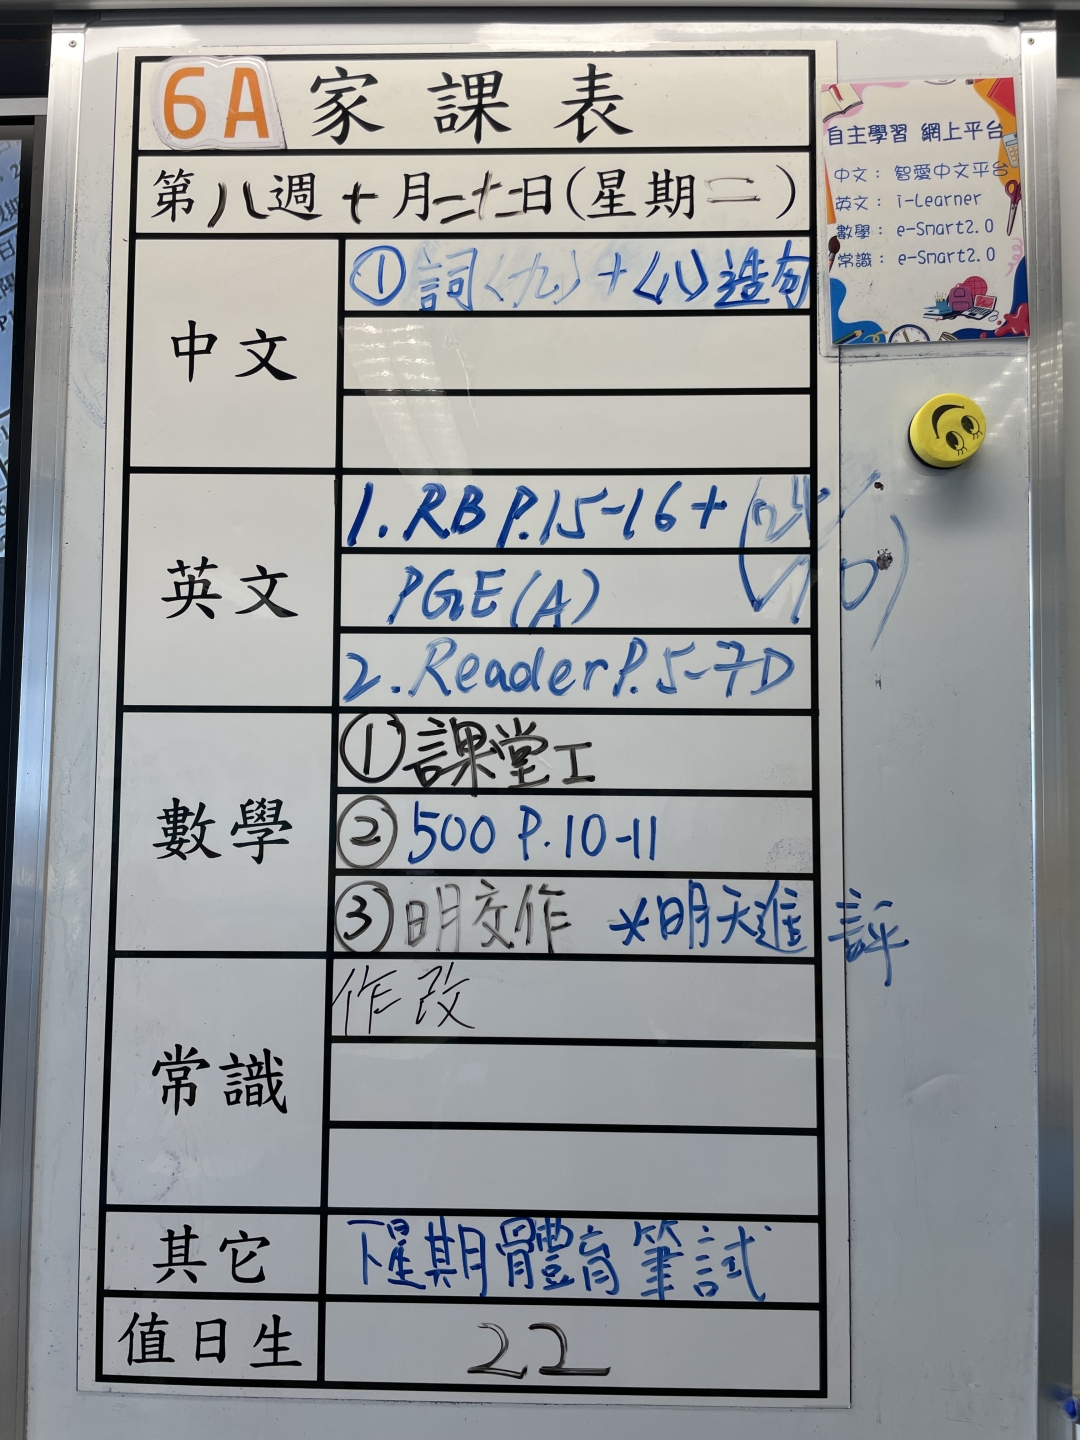 6A 家課表
第八週十月二十一日(星期二)
中文
① 詞〈九〉+〈八〉造句
英文
1. RB P.15-16 +
PGE(A)
2. Reader P.5-7D
數學
① 課堂工
② 500 P.10-11
③ 明交作 *明天進評
常識
作改
其它
下星期體育筆試
值日生
22
自主學習 網上平台
中文： 智愛中文平台
英文： i-Learner
數學： e-Smart2.0
常識： e-Smart2.0